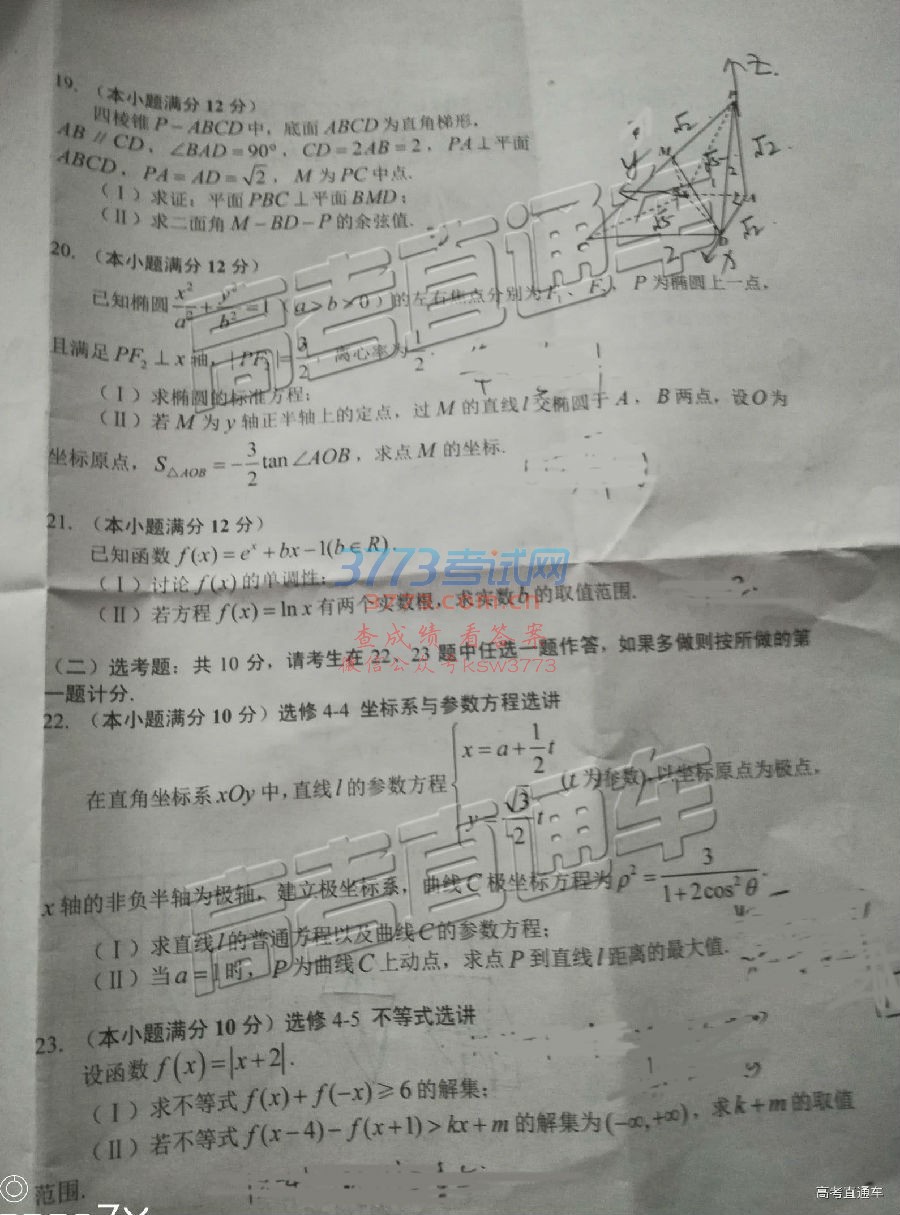 19. （本小题满分 12 分）
四棱锥 P－ABCD 中，底面 ABCD 为直角梯形，
AB∥CD，∠BAD=90°，CD=2AB=2，PA⊥平面
ABCD，PA=AD=√2，M 为 PC 中点.
（Ⅰ）求证：平面 PBC⊥平面 BMD；
（Ⅱ）求二面角 M－BD－P 的余弦值.
20. （本小题满分 12 分）
已知椭圆 x²/a²+y²/b²=1（a>b>0）的左右焦点分别为 F₁、F₂，P 为椭圆上一点，
且满足 PF₂⊥x 轴，|PF₂|=3/2，离心率为 1/2.
（Ⅰ）求椭圆的标准方程；
（Ⅱ）若 M 为 y 轴正半轴上的定点，过 M 的直线 l 交椭圆于 A，B 两点，设 O 为
坐标原点，S△AOB=-3/2 tan∠AOB，求点 M 的坐标.
21. （本小题满分 12 分）
已知函数 f(x)=eˣ+bx-1(b∈R).
（Ⅰ）讨论 f(x) 的单调性；
（Ⅱ）若方程 f(x)=ln x 有两个实数根，求实数 b 的取值范围.
（二）选考题：共 10 分，请考生在 22、23 题中任选一题作答，如果多做则按所做的第
一题计分.
22. （本小题满分 10 分）选修 4-4 坐标系与参数方程选讲
在直角坐标系 xOy 中，直线 l 的参数方程 { x=a+1/2 t y=√3/2 t (t 为参数)，以坐标原点为极点，
x 轴的非负半轴为极轴，建立极坐标系，曲线 C 极坐标方程为 ρ²=3/(1+2cos²θ).
（Ⅰ）求直线 l 的普通方程以及曲线 C 的参数方程；
（Ⅱ）当 a=1 时，P 为曲线 C 上动点，求点 P 到直线 l 距离的最大值.
23. （本小题满分 10 分）选修 4-5 不等式选讲
设函数 f(x)=|x+2|.
（Ⅰ）求不等式 f(x)+f(-x)≥6 的解集；
（Ⅱ）若不等式 f(x-4)-f(x+1)>kx+m 的解集为 (-∞,+∞)，求 k+m 的取值
范围.
z
√2
√2
y
√5
2
√2
x
高考直通车
3773考试网
3773.com.cn
查成绩 看答案
微信公众号ksw3773
高考直通车
高考直通车